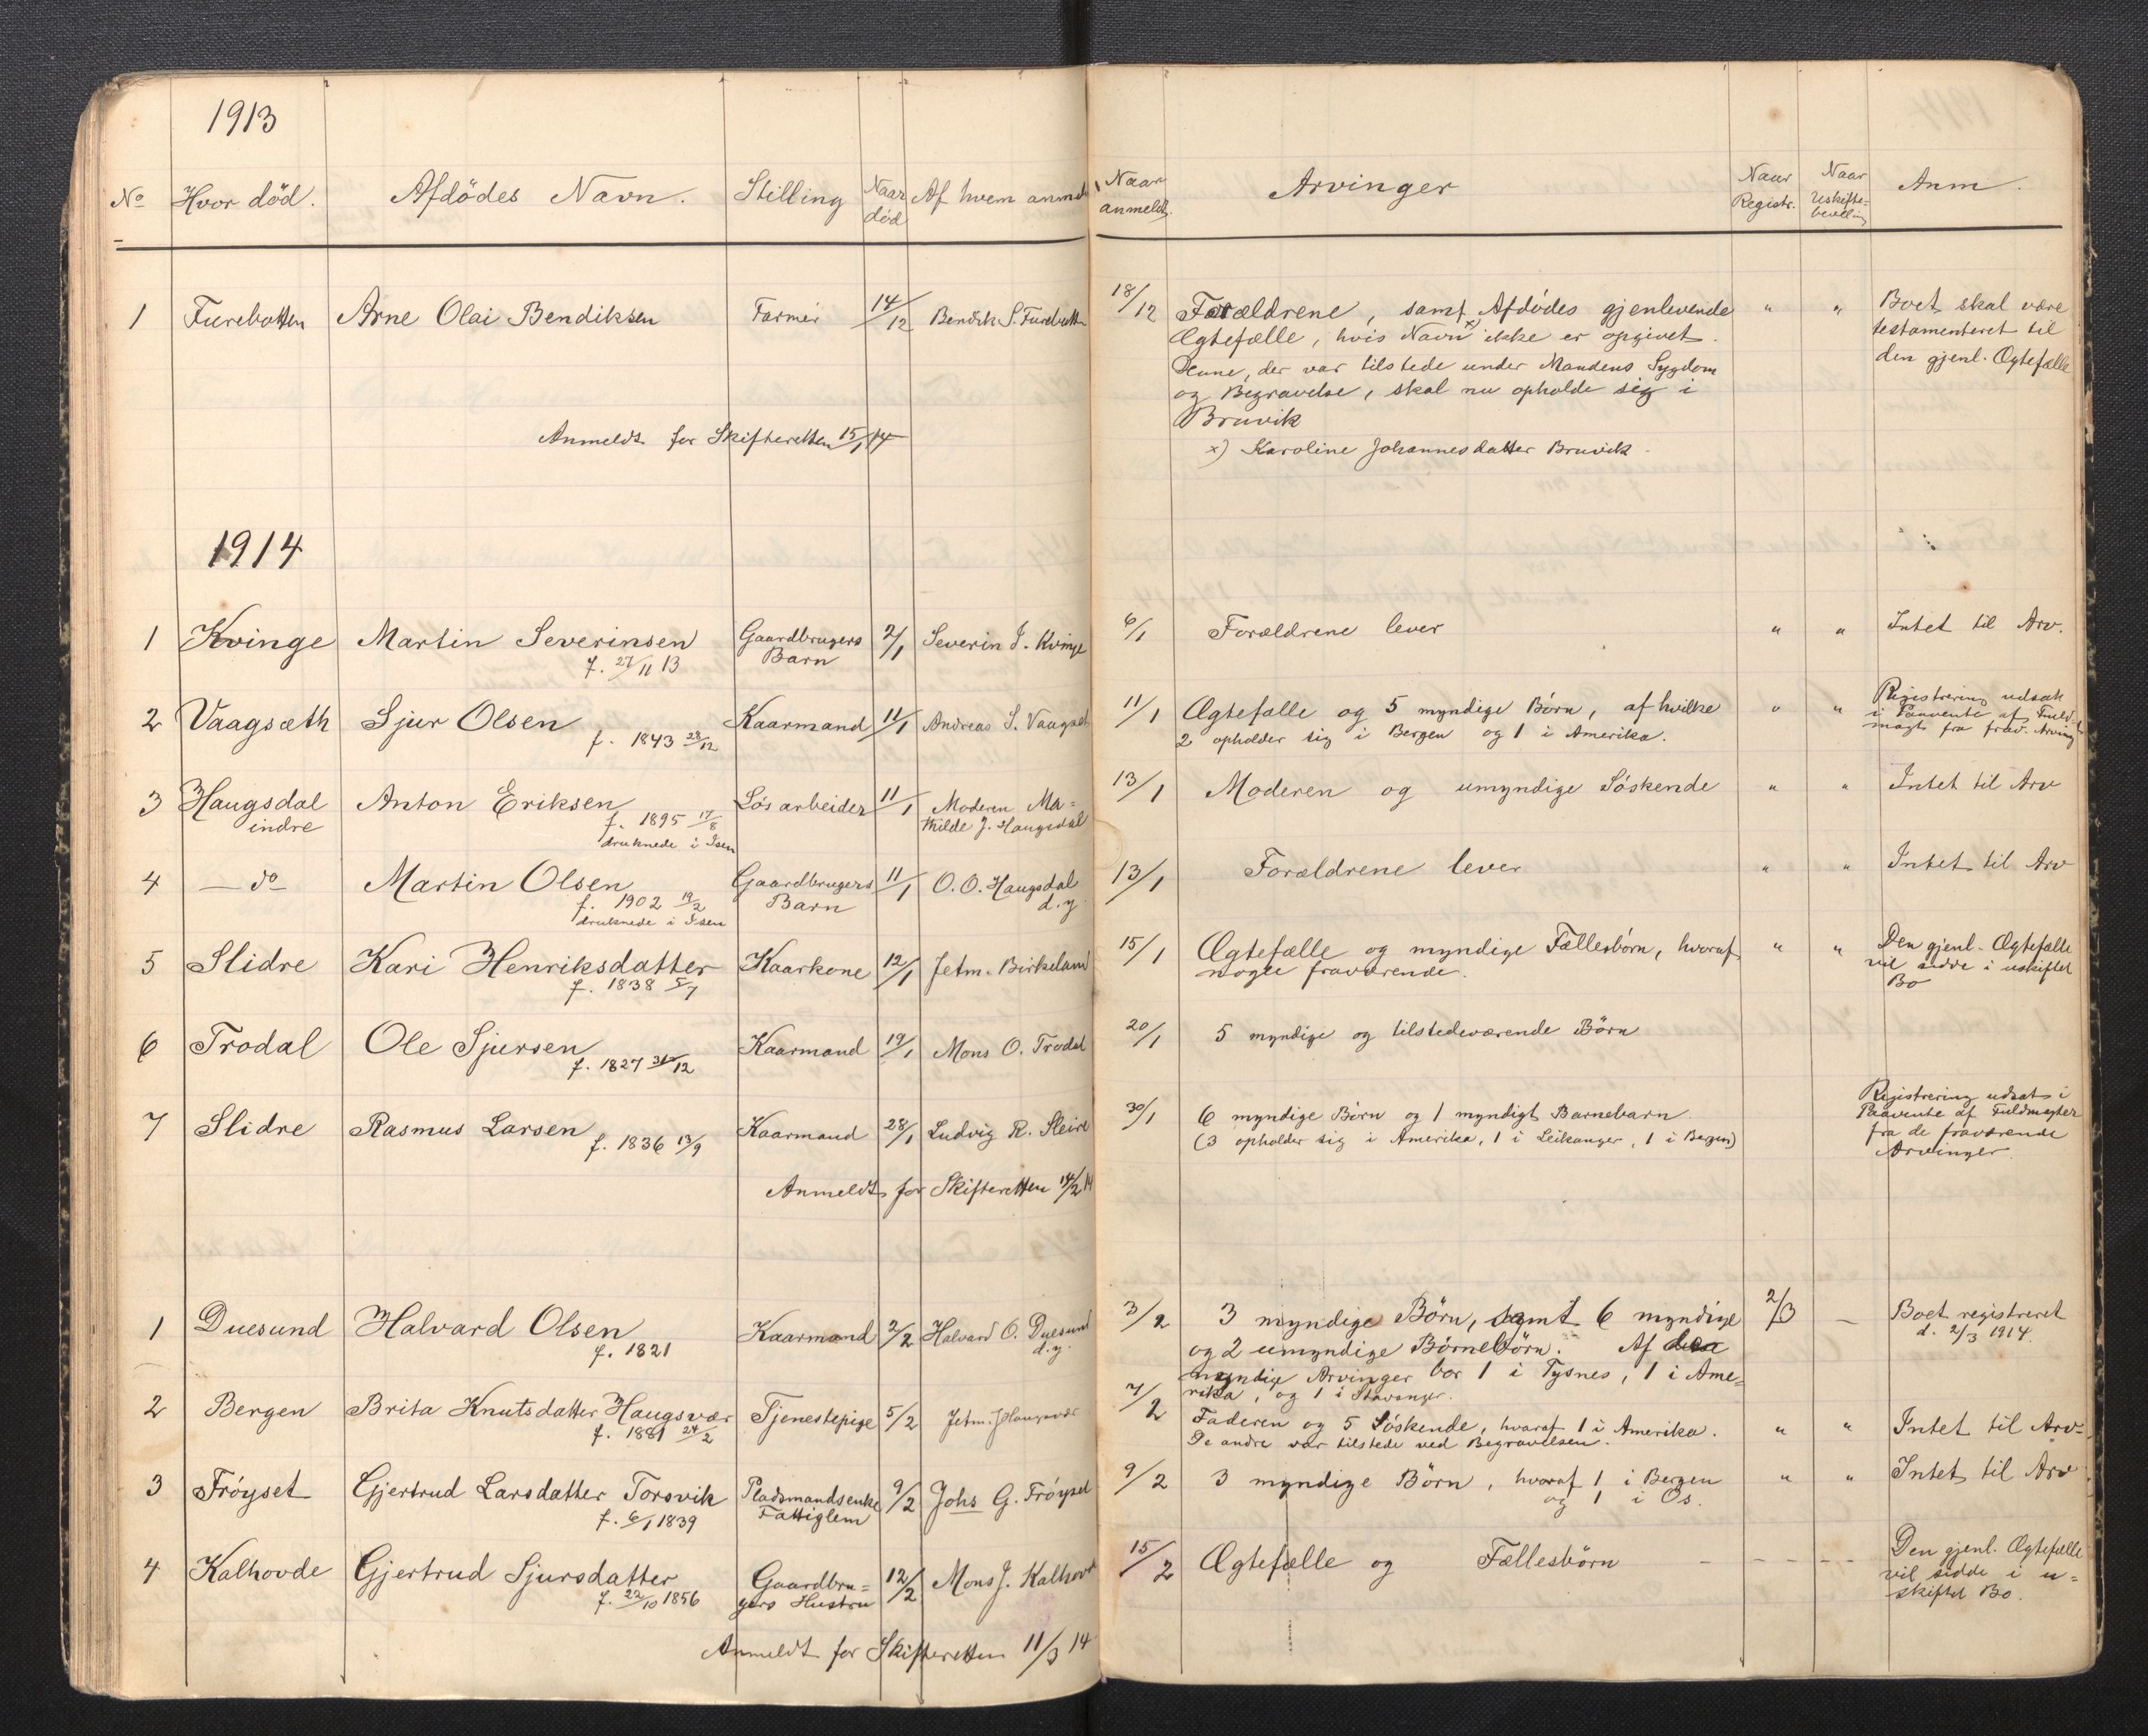 1913
No Hvor död. Afdödes Navn. Stilling Naar död Af hvem anmeldt Naar anmeldt. Arvinger Naar Registr. Naar Uskifte=bevilling Anm.
1 Furebotten Arne Olai Bendiksen Farmer 14/12 Bendik S. Furebotten 18/12 Forældrene, samt Afdödes gjenlevende " " Boet skal være
Ægtefælle, hvis Navn x) ikke er opgivet. testamenteret til
Denne, der var tilstede under Mandens Sygdom den gjenl. Ægtefælle
og Begravelse, skal nu opholde sig i
Bruvik
Anmeldt for Skifteretten 15/1 14
x) Karoline Johannesdatter Bruvik.
1914
1 Kvinge Martin Severinsen Gaardbrugers 2/1 Severin J. Kvinge 6/1 Forældrene lever " " Intet til Arv.
f. 27/11 13 Barn
2 Vaagsæth Sjur Olsen Kaarmand 11/1 Andreas S. Vaagset 11/1 Ægtefælle og 5 myndige Börn, af hvilke " " Registrering udsat
f. 1843 28/12 2 opholder sig i Bergen og 1 i Amerika. i Paavente af Fuld=
magt fra frav. Arving
3 Haugsdal Anton Eriksen Lös arbeider 11/1 Moderen Ma= 13/1 Moderen og umyndige Söskende " " Intet til Arv
indre f. 1895 17/8 thilde J. Haugsdal
druknede i Isen
4 — do Martin Olsen Gaardbrugers 11/1 O. O. Haugsdal 13/1 Forældrene lever " " Intet til Arv
f. 1902 19/2 Barn d. y.
druknede i Isen
5 Slidre Kari Henriksdatter Kaarkone 12/1 Jetm. Birkeland 15/1 Ægtefælle og myndige Fællesbörn, hvoraf " " Den gjenl. Ægtefælle
f. 1838 5/7 nogle fraværende. vil sidde i uskiftet
Bo
6 Trodal Ole Sjursen Kaarmand 19/1 Mons O. Trodal 20/1 5 myndige og tilstedeværende Börn
f. 1827 31/12
7 Slidre Rasmus Larsen Kaarmand 28/1 Ludvig R. Sleire 30/1 6 myndige Börn og 1 myndigt Barnebarn. Registrering udsats i
f. 1836 13/9 (3 opholder sig i Amerika, 1 i Leikanger, 1 i Bergen) Paavente af Fuldmagter
fra de fraværende
Arvinger.
Anmeldt for Skifteretten 14/2 14
1 Duesund Halvard Olsen Kaarmand 2/2 Halvard O. Duesund 3/2 3 myndige Börn, samt 6 myndige 2/3 — Boet registreret
f. 1821 d. y. og 2 umyndige Börnebörn. Af d. 2/3 1914.
myndige Arvinger bor 1 i Tysnes, 1 i Ame=
rika, og 1 i Stavanger.
2 Bergen Brita Knutsdatter Haugsvær Tjenestepige 5/2 Jetm. Haugsvær 7/2 Faderen og 5 Söskende, hvoraf 1 i Amerika. " " Intet til Arv
f. 1881 24/2 De andre var tilstede ved Begravelsen.
3 Fröyset Gjertrud Larsdatter Torsvik Pladsmandsenke 9/2 Johs G. Fröyset 9/2 3 myndige Börn, hvoraf 1 i Bergen " " Intet til Arv
f. 6/1 1839 Fattiglem og 1 i Os.
4 Kalhovde Gjertrud Sjursdatter Gaardbru= 12/2 Mons J. Kalhovde 15/2 Ægtefælle og Fællesbörn — — — — Den gjenl. Ægtefælle
f. 22/10 1856 gers Hustru vil sidde i u=
skiftet Bo.
Anmeldt for Skifteretten 11/3 14